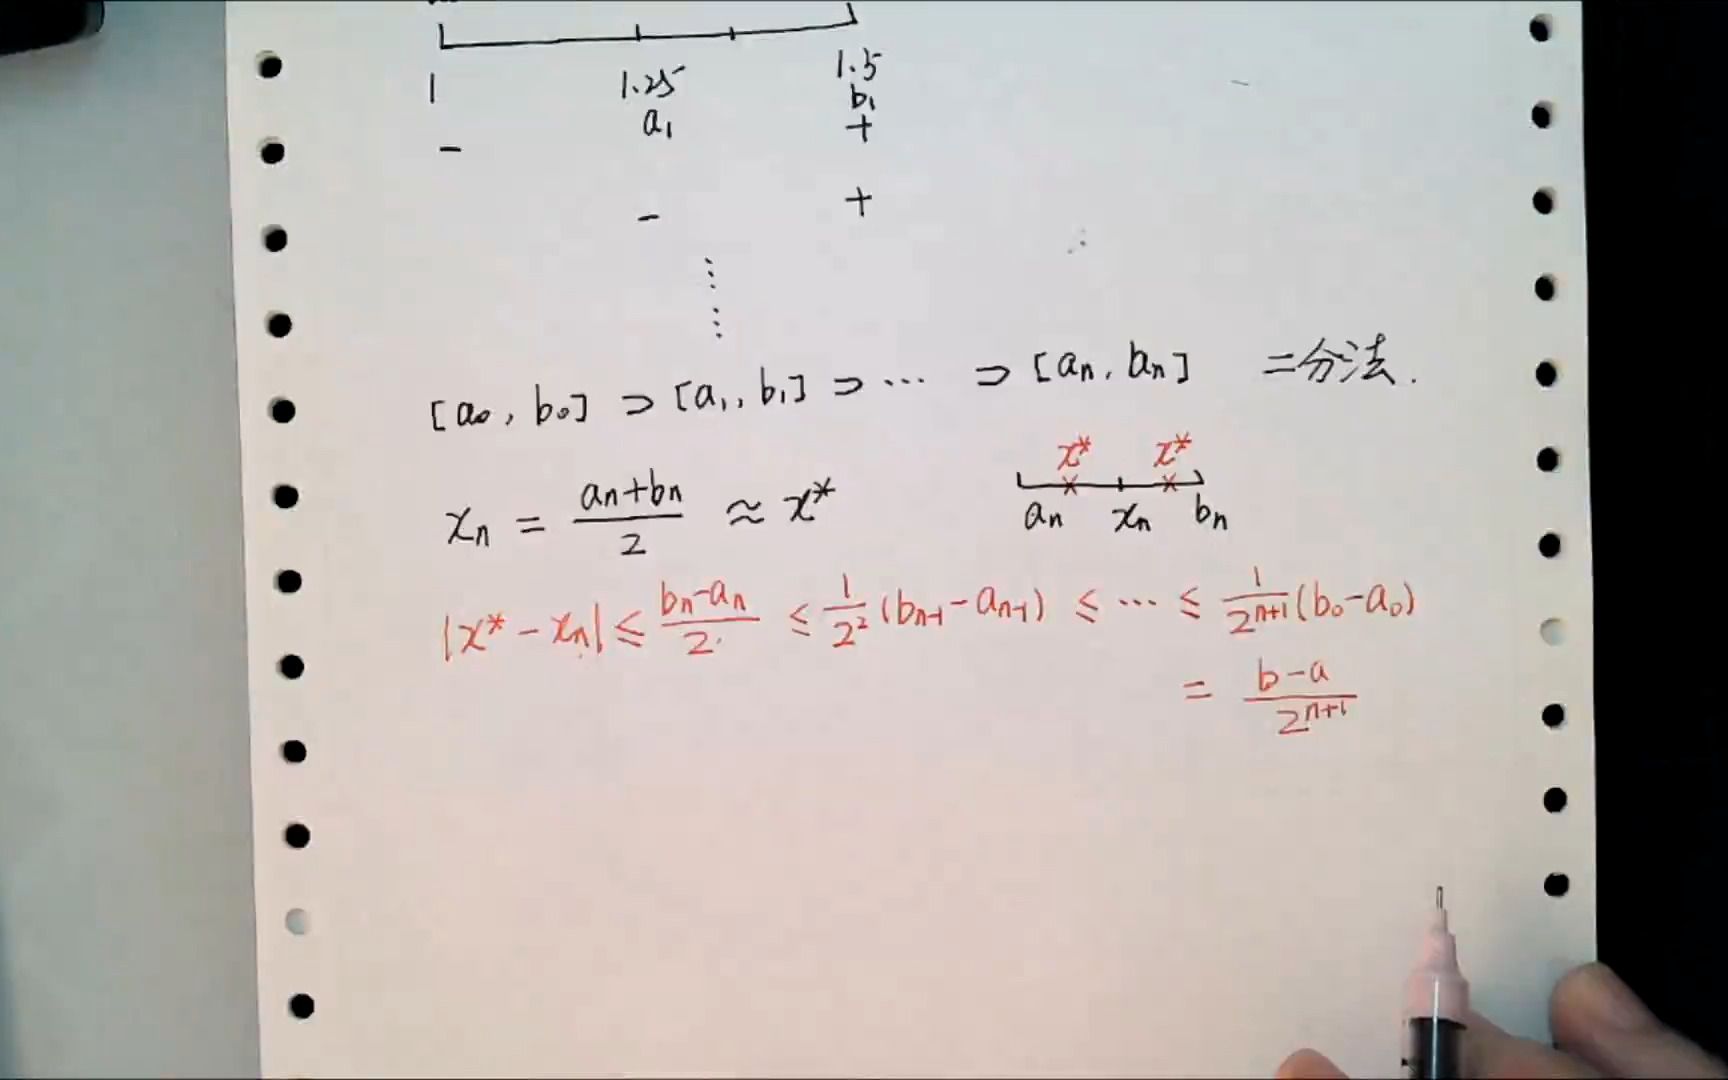 1 1.25 1.5
a₁ b₁
- +
- +
⋮
⋮
[a₀, b₀] ⊃ [a₁, b₁] ⊃ ⋯ ⊃ [aₙ, bₙ] 二分法.
x* x*
xₙ = (aₙ+bₙ)/2 ≈ x* aₙ xₙ bₙ
|x* - xₙ| ≤ (bₙ-aₙ)/2 ≤ 1/2² (bₙ₋₁ - aₙ₋₁) ≤ ⋯ ≤ 1/2ⁿ⁺¹ (b₀-a₀)
= (b-a)/2ⁿ⁺¹